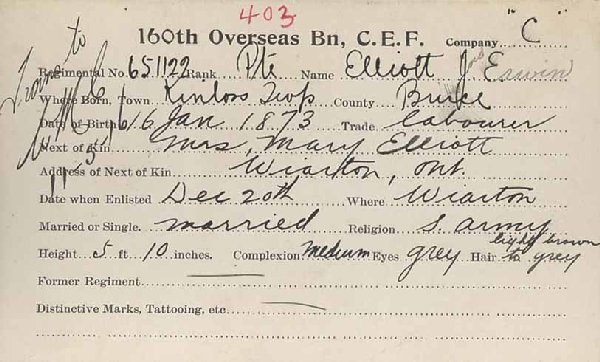 403
160th Overseas Bn, C.E.F. Company "C"
Regimental No. 651122 Rank Pte Name Elliott J. Edwin
Where Born, Town Kinloss Twp County Bruce
Date of Birth 16 Jan 1873 Trade labourer
Next of Kin Mrs, Mary Elliott
Address of Next of Kin Wiarton, Ont.
Date when Enlisted Dec 20th Where Wiarton
Married or Single. married Religion S. army
Height 5 ft 10 inches. Complexion Medium Eyes grey Hair light brown to grey
Former Regiment
Distinctive Marks, Tattooing, etc.